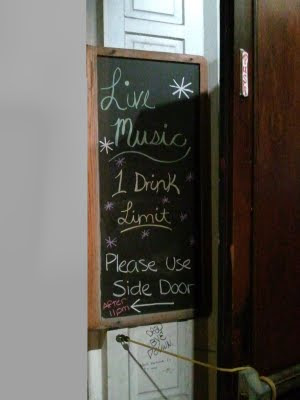 Live
Music
1 Drink
Limit
Please Use
Side Door
AFTER
11pm